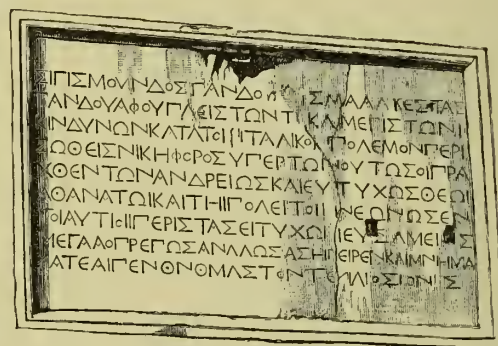 ΣΙΓΙΣΜΟΥΝΔΟΣΓΑΝΔΟ ΣΜΑΛΑΚΕΣΤΑΣ
ΑΝΔΟΥΑΦΟΥΓΛΕΙΣΤΩΝΤ ΚΑΙΜΕΓΙΣΤΩΝ
ΙΝΔΥΝΩΝΚΑΤΑΤΟ ΙΤΑΛΙΚΟ ΠΟΛΕΜΟΝΓΕΡΙ
ΣΩΘΕΙΣΝΙΚΗΦΟΡΟΣΥΓΕΡΤΩΝΟΥΤΩΣΟΙΓΡΑ
ΧΘΕΝΤΩΝΑΝΔΡΕΙΩΣΚΑΙΕΥΤΥΧΩΣΘΕΩΙ
ΑΘΑΝΑΤΩΙΚΑΙΤΗΙΓΟΛΕΙΤΟ ΝΕΩΝΩΣΕΝ
ΤΟΙΑΥΤΙΟΙΙΓΕΡΙΣΤΑΣΕΙΤΥΧΩ ΙΕΥΞΑΜΕΙ Σ
ΜΕΓΑΛΟΓΡΕΓΩΣΑΝΑΛΩΣΑΣΗΓΕΙΡΕΝΚΑΙΜΝΗΜΑ
ΑΤΕΛΙΓΕΝΟΝΟΜΑΣΤΟΝΤΕ